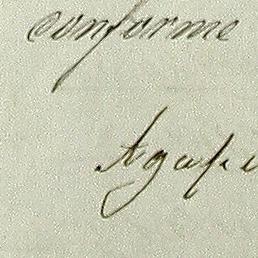 conforme
Agapi